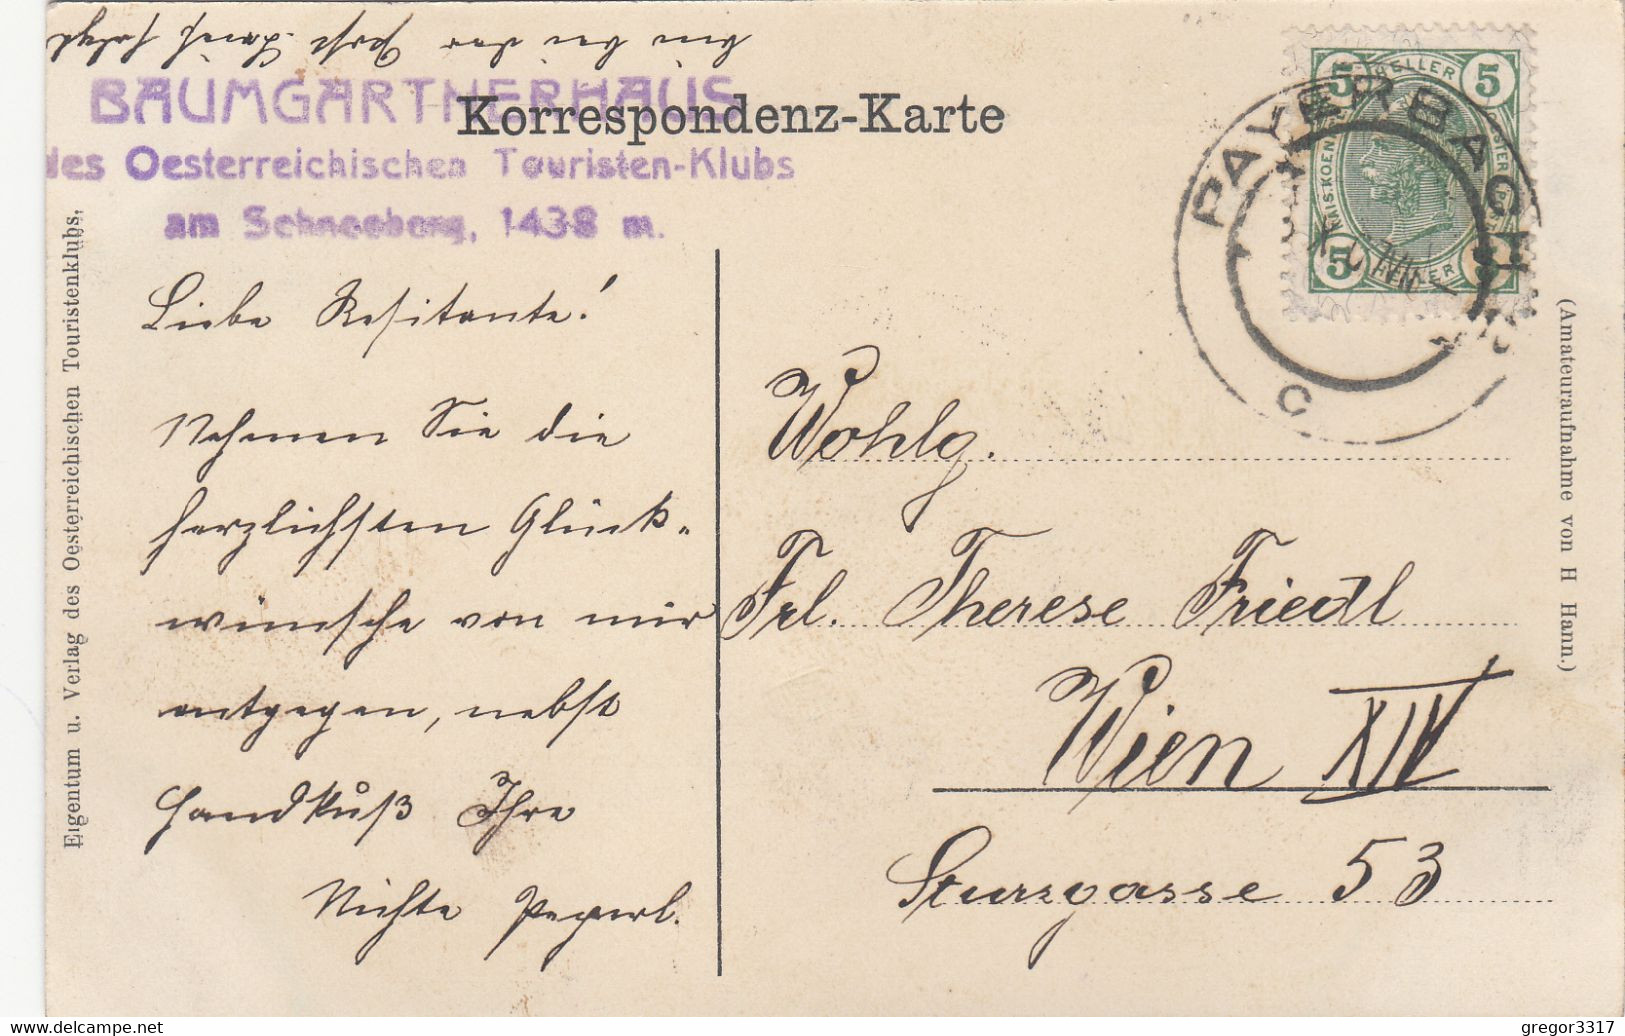 bin bei der
BAUMGARTNERHAUS
des Oesterreichischen Touristen-Klubs
am Schneeberg, 1438 m.
Korrespondenz-Karte
5 HELLER 5
5 HELLER 5
PAYERBACH
C
Eigentum u. Verlag des Oesterreichischen Touristenklubs.
(Amateuraufnahme von H Hann.)
Liebe Resitante!
Nehmen Sie die
herzlichsten Glück-
wünsche von mir
entgegen, nebst
Handkuß Ihre
Nichte Peperl.
Wohlg.
Frl. Therese Friedl
Wien XIV
Sturzgasse 53
gregor3317
www.delcampe.net